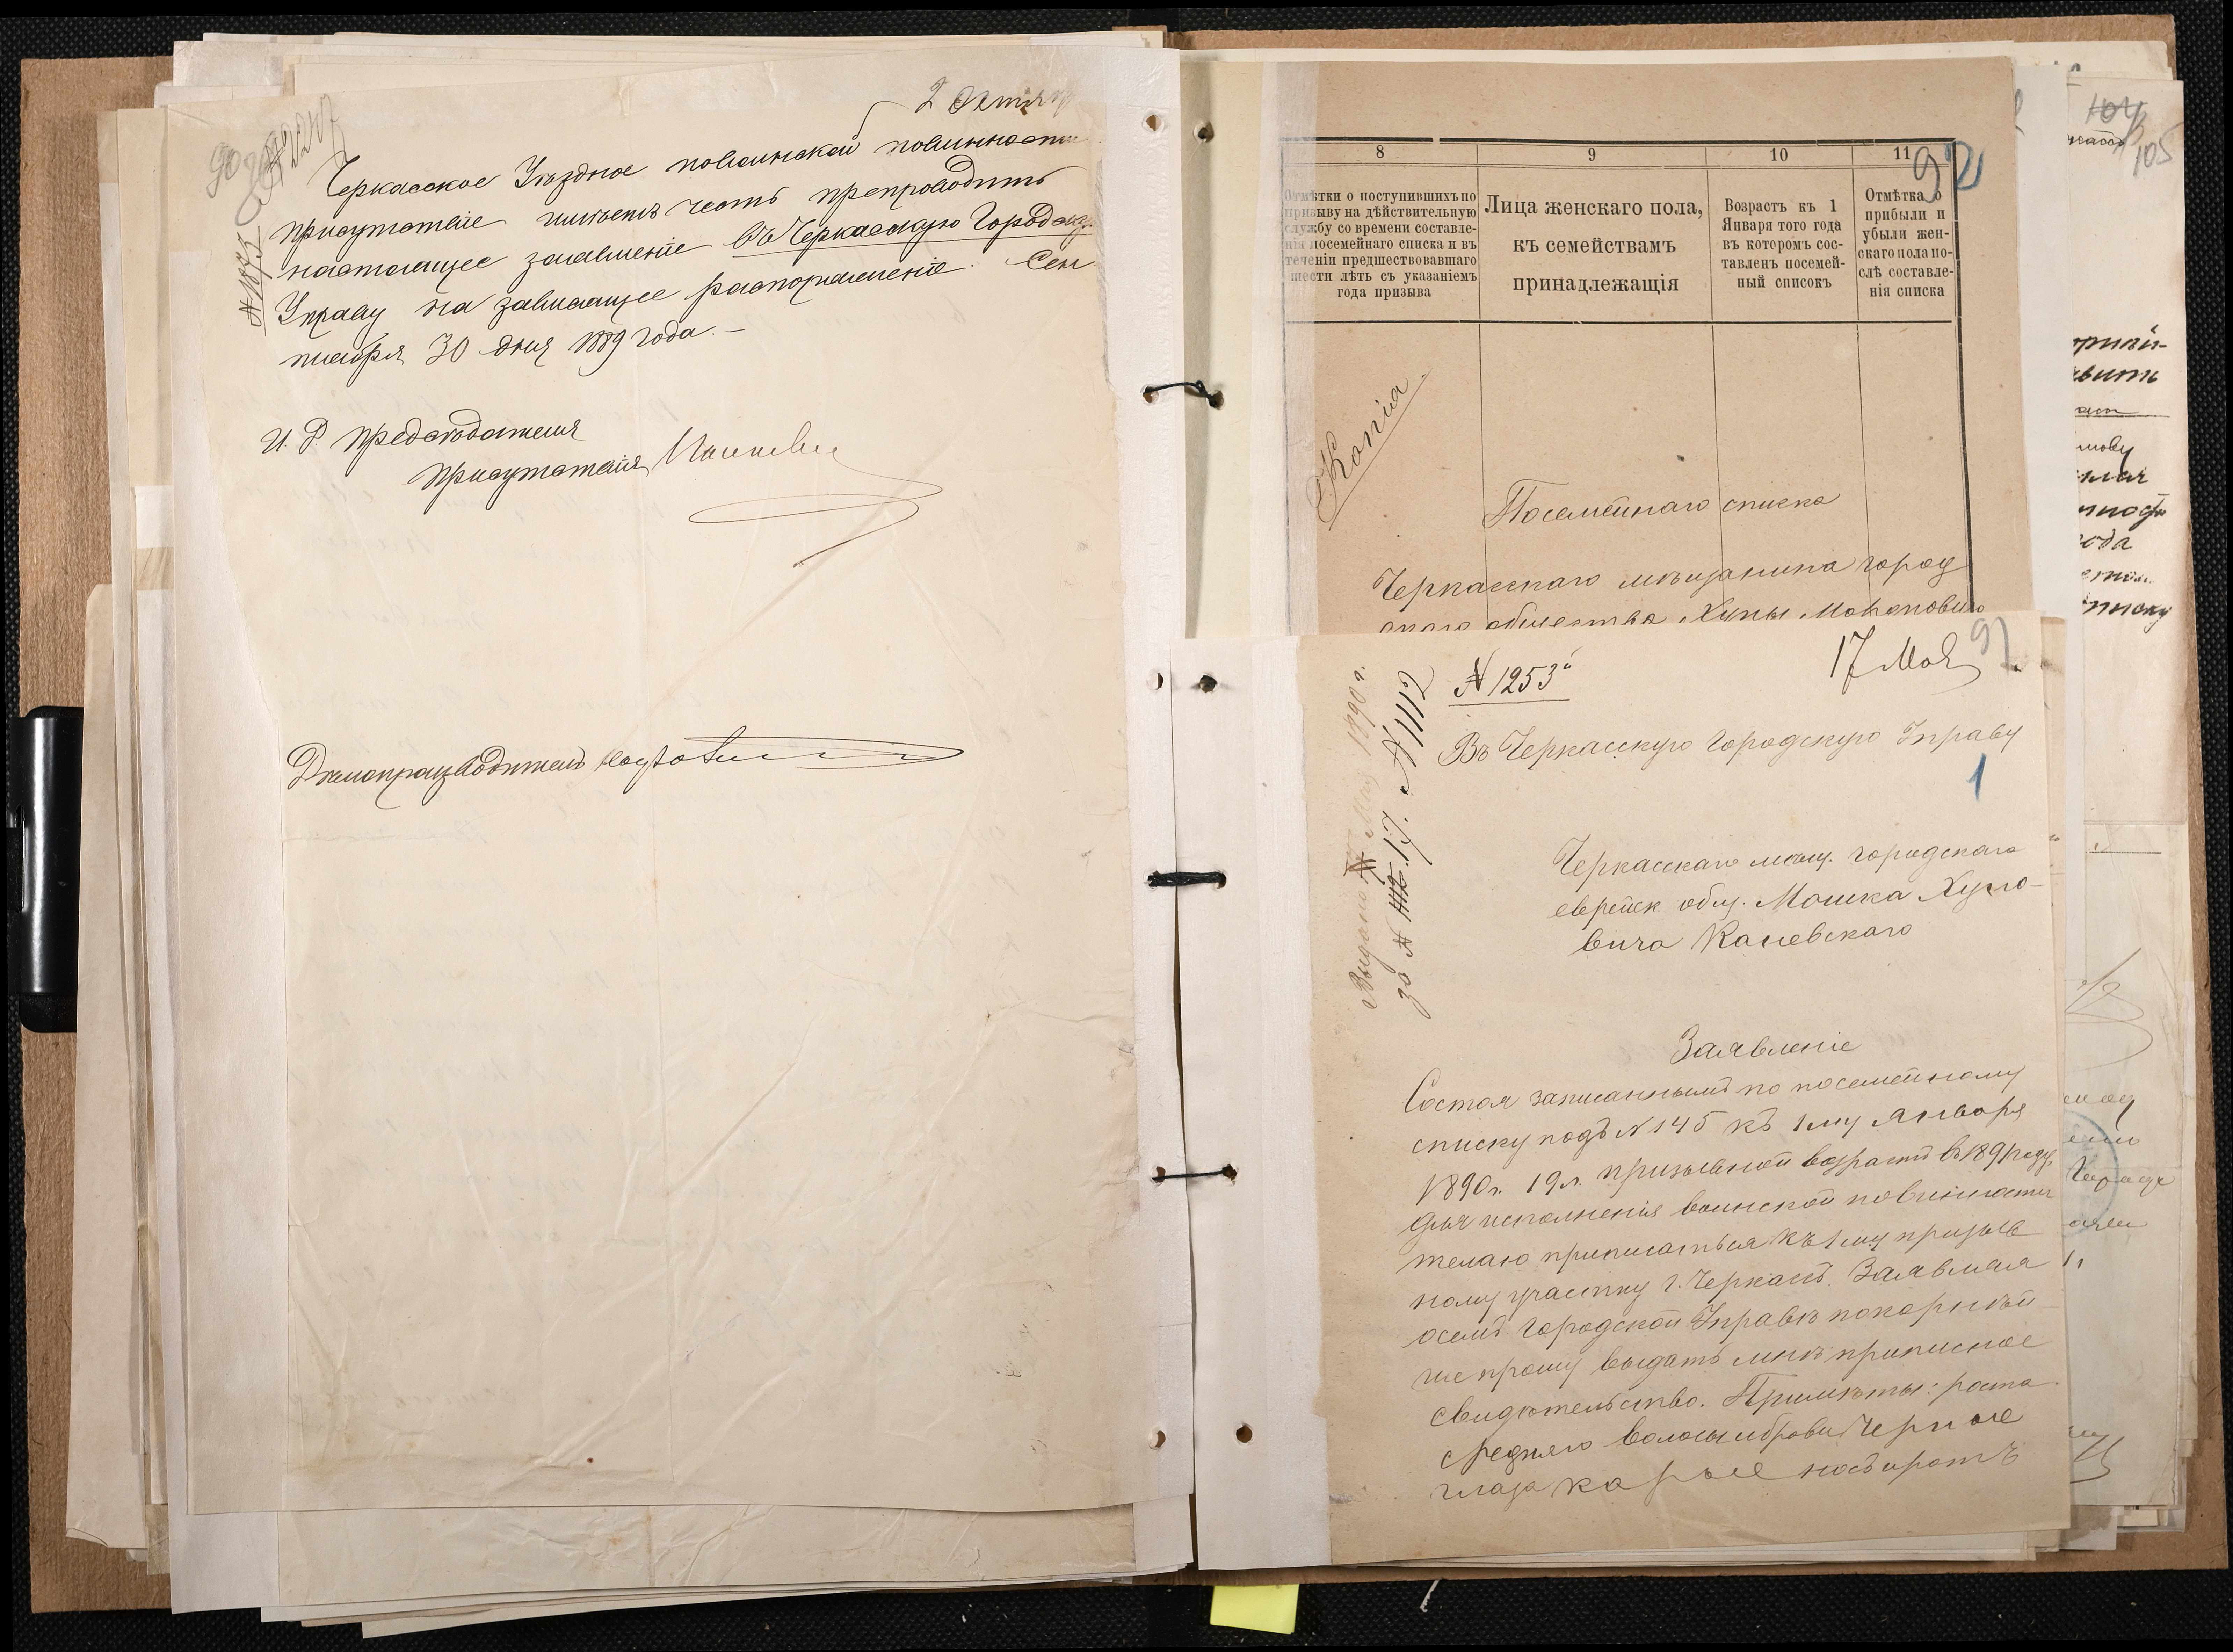 2 Октяб
Черкасское Уѣздное по воинской повинности
присутствіе имѣетъ честь препроводить
настоящее заявленіе въ Черкасскую Городскую
Управу на зависящее распоряженіе. Сен
тября 30 дня 1889 года.—
И. д. предсѣдателя
присутствія
Дѣлопроизводитель
8
9
10
11
92
Отмѣтки о поступившихъ по
призыву на дѣйствительную
службу со времени составле-
нія посемейнаго списка и въ
теченіи предшествовавшаго
шести лѣтъ съ указаніемъ
года призыва
Лица женскаго пола,
къ семействамъ
принадлежащія
Возрастъ къ 1
Января того года
въ которомъ сос-
тавленъ посемей-
ный списокъ
Отмѣтка о
прибыли и
убыли жен-
скаго пола по-
слѣ составле-
нія списка
Копія
Посемейнаго списка
Черкасскаго мѣщанина город
скаго общества Хуны Мошковича
17 Мая 91
№ 1253
Въ Черкасскую Городскую Управу
1
Выдано Мая 1890 г.
за № 17. № 1112
Черкасскаго мѣщ. городскаго
еврейск общ. Мошка Хуно-
вича Каневскаго
Заявленіе
Состоя записаннымъ по посемейному
списку подъ № 145 къ 1му Января
1890 г. 19 л. призывной возрастъ въ 1891 году,
для исполненія воинской повинности
желаю приписаться къ 1му призыв
ному участку г. Черкасъ. Заявляя
осемъ Городской Управѣ покорнѣй
ше прошу выдать мнѣ приписное
свидѣтельство. Примѣты: роста
средняго волосы и брови черные
глаза карые носъ и ротъ
104
105